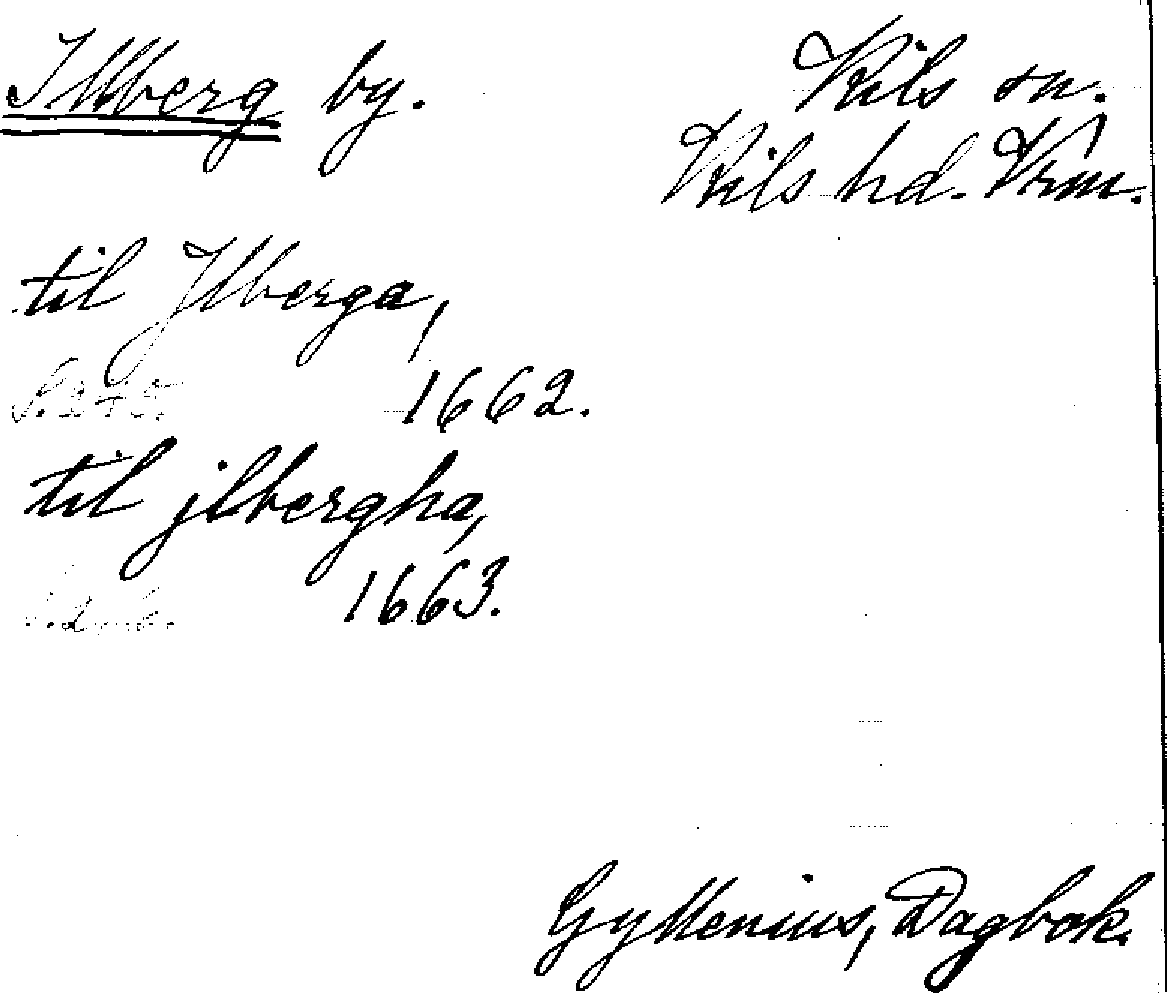 Illberg by.
Kils sn.
Kils hd. Vrm.
til Jlberga,
1662.
til jlbergha,
1663.
Gyllenius, Dagbok.